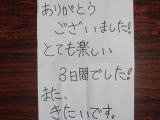 ありがとう
ございました!
とても楽しい
3日間でした!
また、
きたいです。